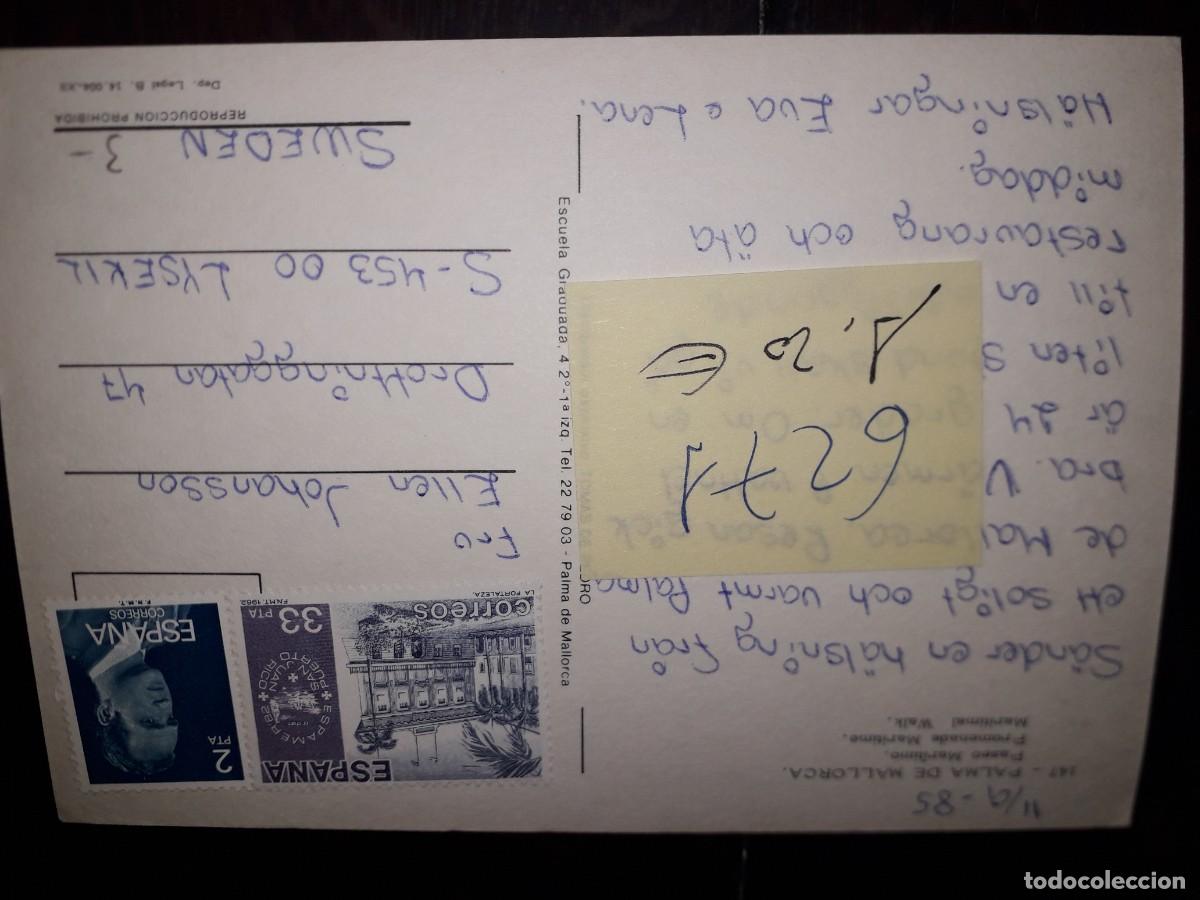 11/9-85
147 - PALMA DE MALLORCA.
Paseo Marítimo.
Promenade Maritime.
Maritimal Walk.
Sänder en hälsning från
ett soligt och varmt Palma
de Mallorca Resan gick
bra. Värmen
är 24 grader. Om en
liten
till en
restaurang och äta
middag.
Hälsningar Eva o Lena.
6271
1.20 €
DRO
Escuela Graduada, 4 2º-1ª izq. Tel. 22 79 03 - Palma de Mallorca
ESPAÑA
ESPAMER'82
SAN JUAN
PUERTO RICO
33 PTA
CORREOS
LA FORTALEZA.
F.N.M.T. 1982
2 PTA
ESPAÑA
CORREOS
F.N.M.T.
Fru
Ellen Johansson
Drottninggatan 47
S-453 00 LYSEKIL
SWEDEN 3-
REPRODUCCION PROHIBIDA
Dep. Legal B. 14.004-XII
todocoleccion